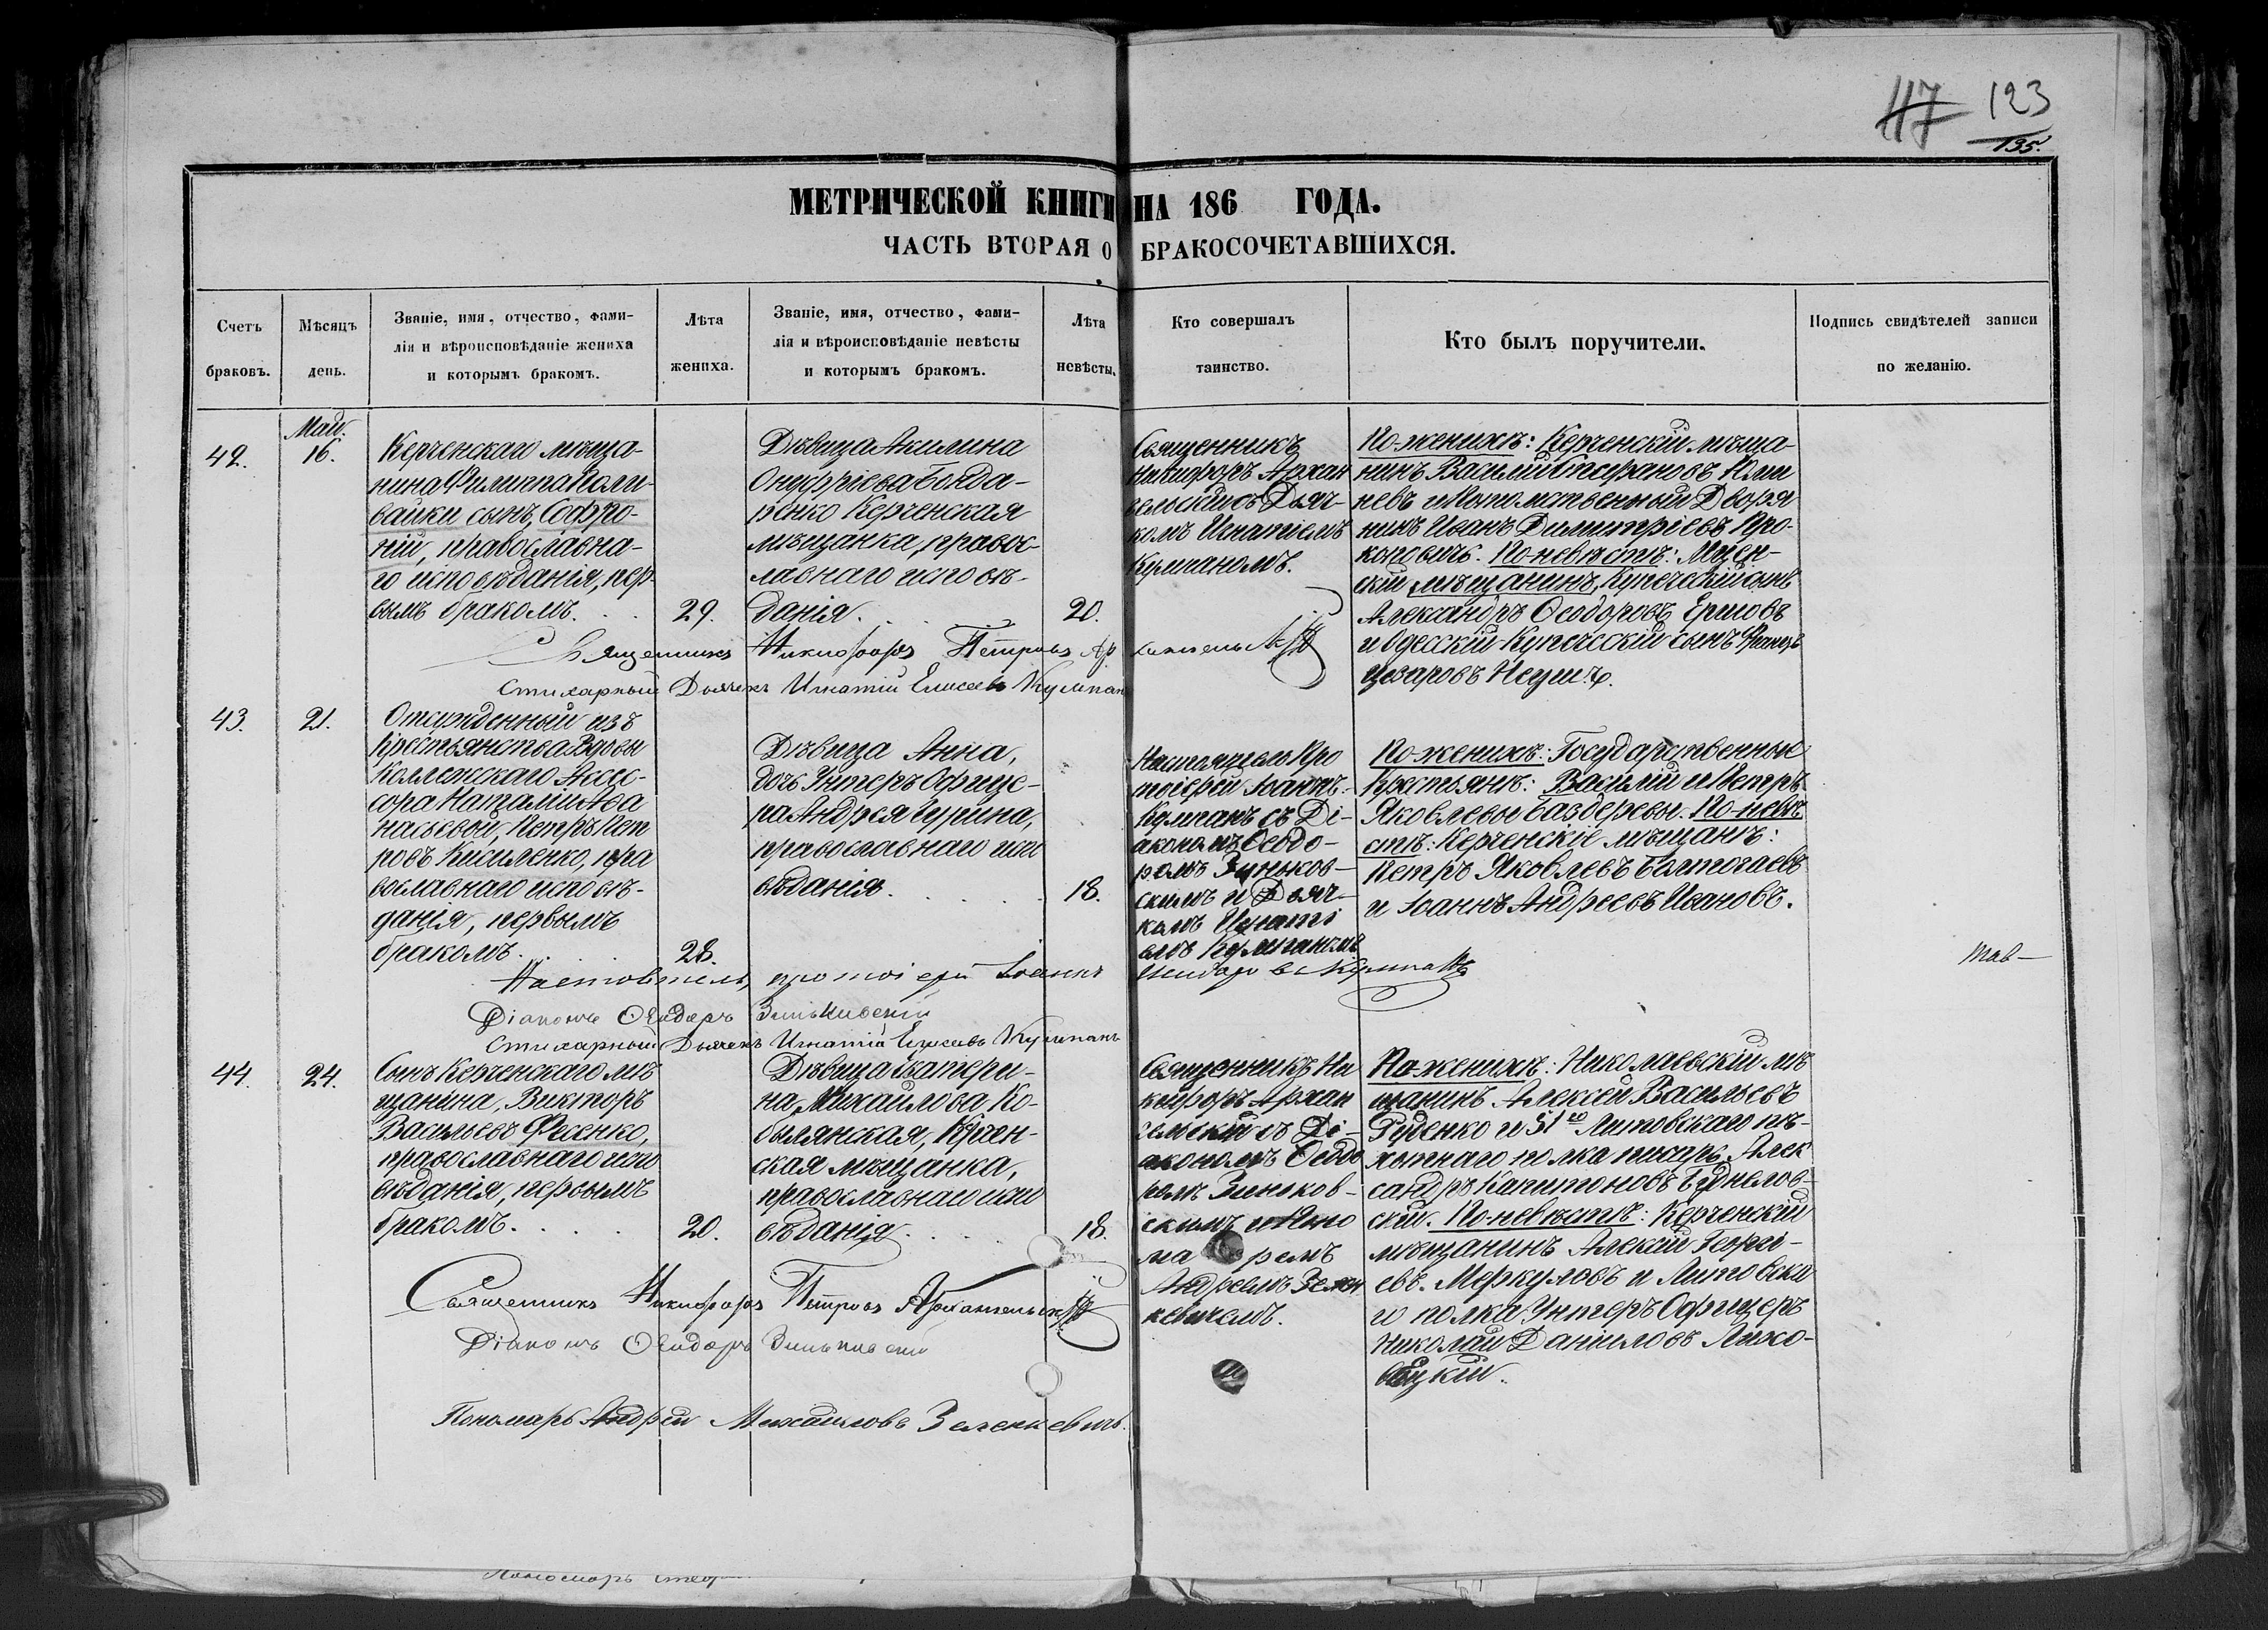 117 123
135.
МЕТРИЧЕСКОЙ КНИГИ НА 186 ГОДА.
ЧАСТЬ ВТОРАЯ О БРАКОСОЧЕТАВШИХСЯ.
Счетъ
браковъ.
Мѣсяцъ
день.
Званіе, имя, отчество, фами-
лія и вѣроисповѣданіе жениха
и которымъ бракомъ.
Лѣта
жениха.
Званіе, имя, отчество, фами-
лія и вѣроисповѣданіе невѣсты
и которымъ бракомъ.
Лѣта
невѣсты.
Кто совершалъ
таинство.
Кто былъ поручители.
Подпись свидѣтелей записи
по желанію.
42.
Май.
16.
Керченскаго мѣща-
нина Филиппа Поли-
вайки сынъ, Софро-
ній, православна-
го исповѣданія, пер-
вымъ бракомъ.
29.
Дѣвица Акилина
Онуфріева Бонда-
ренко Керченская
мѣщанка, правос-
лавнаго исповѣ-
данія.
20.
Священникъ
Никифоръ Архан
гельскій съ Дьяч-
комъ Игнатіемъ
Кулпаномъ.
По-женихѣ: Керченскій мѣща-
нинъ Василій Стефановъ
невъ и Потомственный Дворя
нинъ Иванъ Димитріевъ Про-
коповичъ. По-невѣстѣ: Мцен-
скій мѣщанинъ, Купеческій сынъ
Александръ Ѳеодоровъ Ершовъ
и Одесскій Купеческій сынъ
Священникъ Никифоръ Петровъ Архангельскій
Стихарный Дьячекъ Игнатій Елисеевъ Кулпанъ
43.
21.
Отсужденный изъ
Крестьянства Вдовы
Коллежскаго Ассес-
сора Наталіи Афа
насьевой, Петръ Пет
ровъ Кисиленко, пра
вославнаго исповѣ-
данія, первымъ
бракомъ.
28.
Дѣвица Анна,
дочь Унтеръ Офице-
ра Андрея Чурина,
православнаго испо
вѣданія.
18.
Настоятель Про
тоіерей Іоаннъ
Кулпанъ съ Ді-
акономъ Ѳеодо-
ромъ Зиньков-
скимъ и Дьяч-
комъ Игнаті
емъ Кулпаномъ
По-женихѣ: Государственные
Крестьяне: Василій и Петръ
Яковлевы Баздеревы. По-невѣ
стѣ: Керченскіе мѣщане:
Петръ Яковлевъ
и Іоаннъ Андреевъ Ивановъ.
Настоятель, протоіерей Іоаннъ Исидоровъ Кулпанъ
Діаконъ Ѳеодоръ Зиньковскій
Стихарный Дьячекъ Игнатій Елисеевъ Кулпанъ
44.
24.
Сынъ Керченскаго мѣ
щанина, Викторъ
Васильевъ Фесенко,
православнаго испо
вѣданія, первымъ
бракомъ.
20.
Дѣвица Екатери-
на Михайлова Ко-
былянская, Керчен-
ская мѣщанка,
православнаго испо
вѣданія.
18.
Священникъ Ни
кифоръ Архан
гельскій съ Ді-
акономъ Ѳеодо
ромъ Зиньков-
скимъ и Поно
маремъ
Андреемъ Зелен
кевичемъ.
По-женихѣ: Николаевскій мѣ
щанинъ Алексѣй Васильевъ
Руденко и 51го Литовскаго пѣ-
хотнаго полка писарь Алек
сандръ Капитоновъ
скій. По-невѣстѣ: Керченскій
мѣщанинъ Алексій Георгі-
евъ Меркуловъ и Литовска
го полка Унтеръ Офицеръ
Николай Даніиловъ
Священникъ Никифоръ Петровъ Архангельскій
Діаконъ Ѳеодоръ Зиньковскій
Пономарь Андрей Михайловъ Зеленкевичъ.
Пономарь